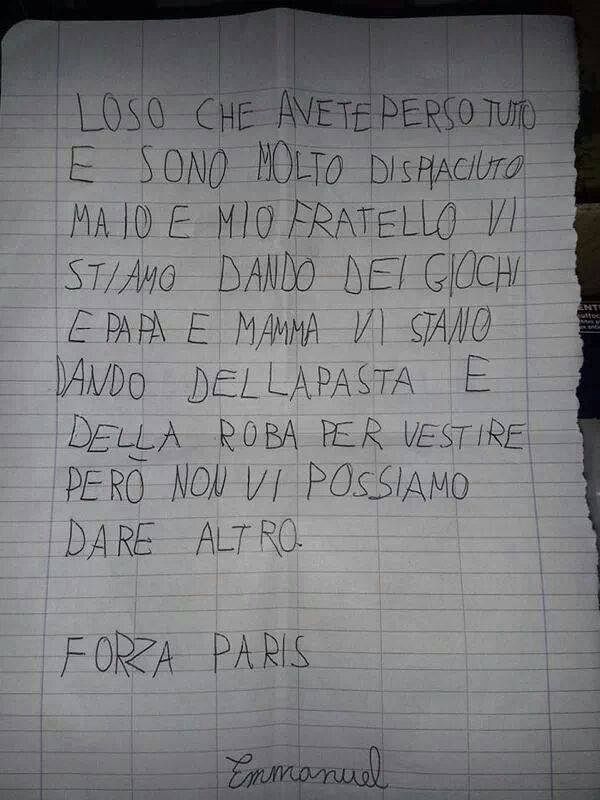 LOSO CHE AVETE PERSO TUTTO
E SONO MOLTO DISPIACIUTO
MA IO E MIO FRATELLO VI
STIAMO DANDO DEI GIOCHI
E PAPA E MAMMA VI STANO
DANDO DELLAPASTA E
DELLA ROBA PER VESTIRE
PERÒ NON VI POSSIAMO
DARE ALTRO.
FORZA PARIS
Emmanuel